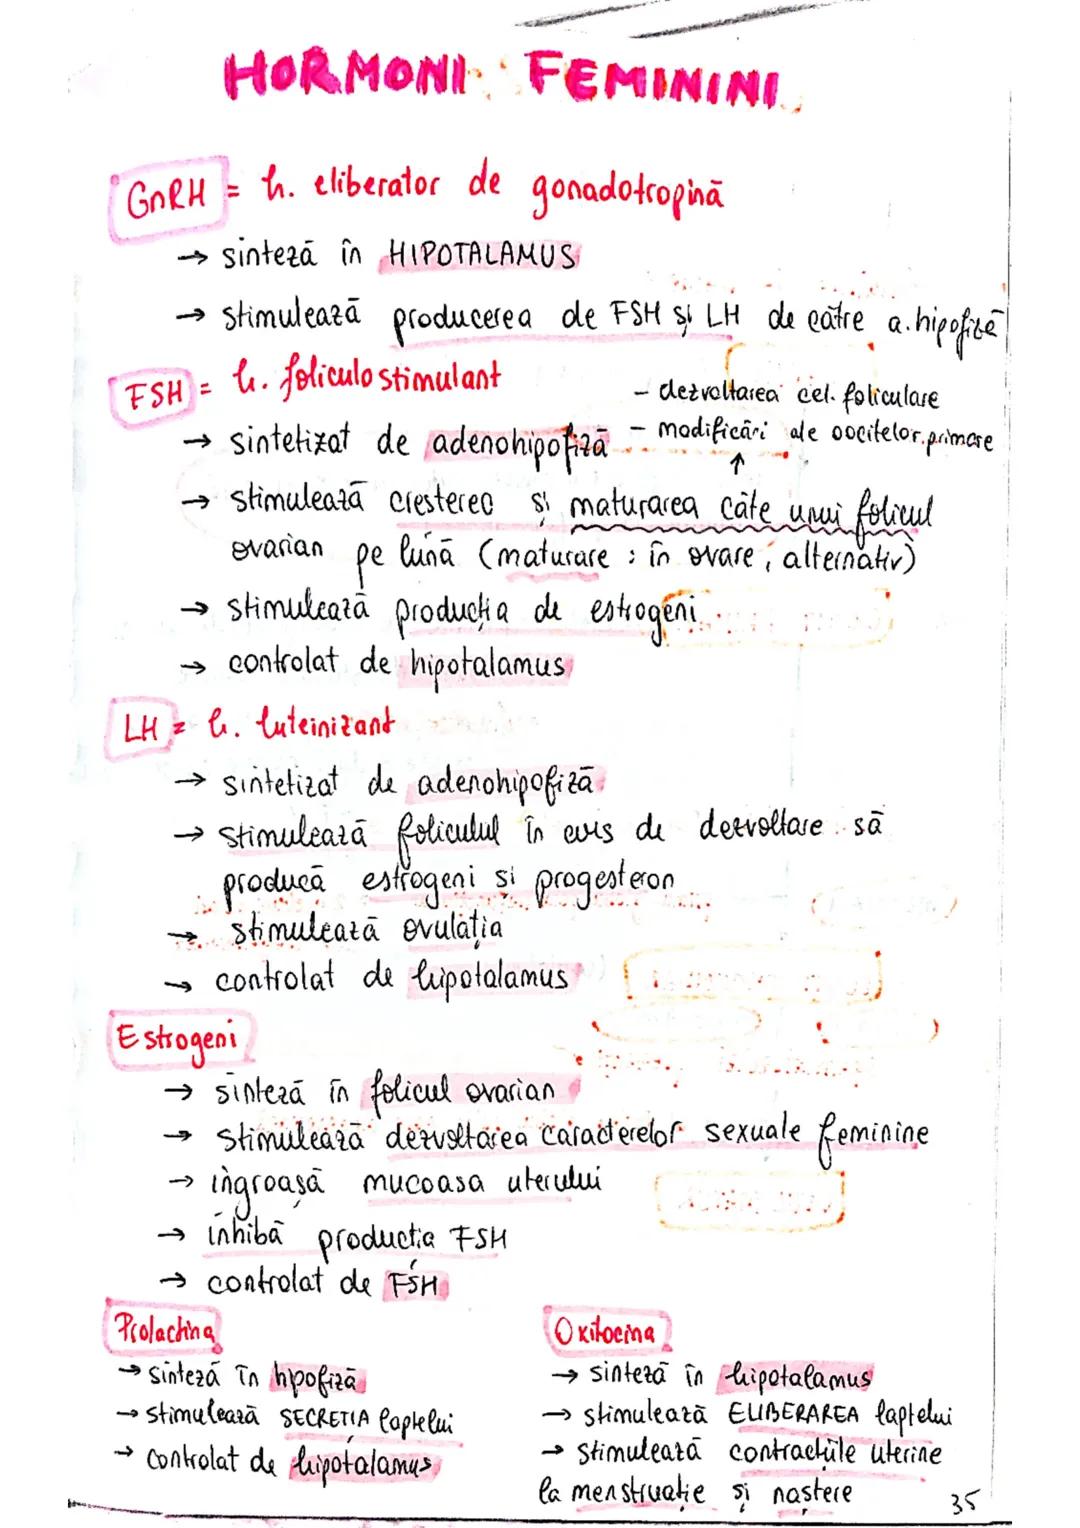 HORMONI FEMININI
GnRH = h. eliberator de gonadotropină
→ sinteză în HIPOTALAMUS
→ stimulează producerea de FSH și LH de către a.hipofiză
FSH = h. foliculostimulant
- dezvoltarea cel. foliculare
→ sintetizat de adenohipofiză - modificări ale oocitelor primare
↑
→ stimulează creșterea și maturarea câte unui folicul
ovarian pe lună (maturare : în ovare, alternativ)
→ stimulează producția de estrogeni
→ controlat de hipotalamus
LH = h. luteinizant
→ sintetizat de adenohipofiză
→ stimulează foliculul în curs de dezvoltare să
producă estrogeni si progesteron
→ stimulează ovulația
→ controlat de hipotalamus
Estrogeni
→ sinteză în folicul ovarian
→ stimulează dezvoltarea caracterelor sexuale feminine
→ îngroașă mucoasa uterului
→ inhibă producția FSH
→ controlat de FSH
Prolactina
→ sinteză în hpofiză
→ stimulează SECREȚIA laptelui
→ controlat de hipotalamus
Oxitocina
→ sinteză în hipotalamus
→ stimulează ELIBERAREA laptelui
→ stimulează contracțiile uterine
la menstruație și naștere
35